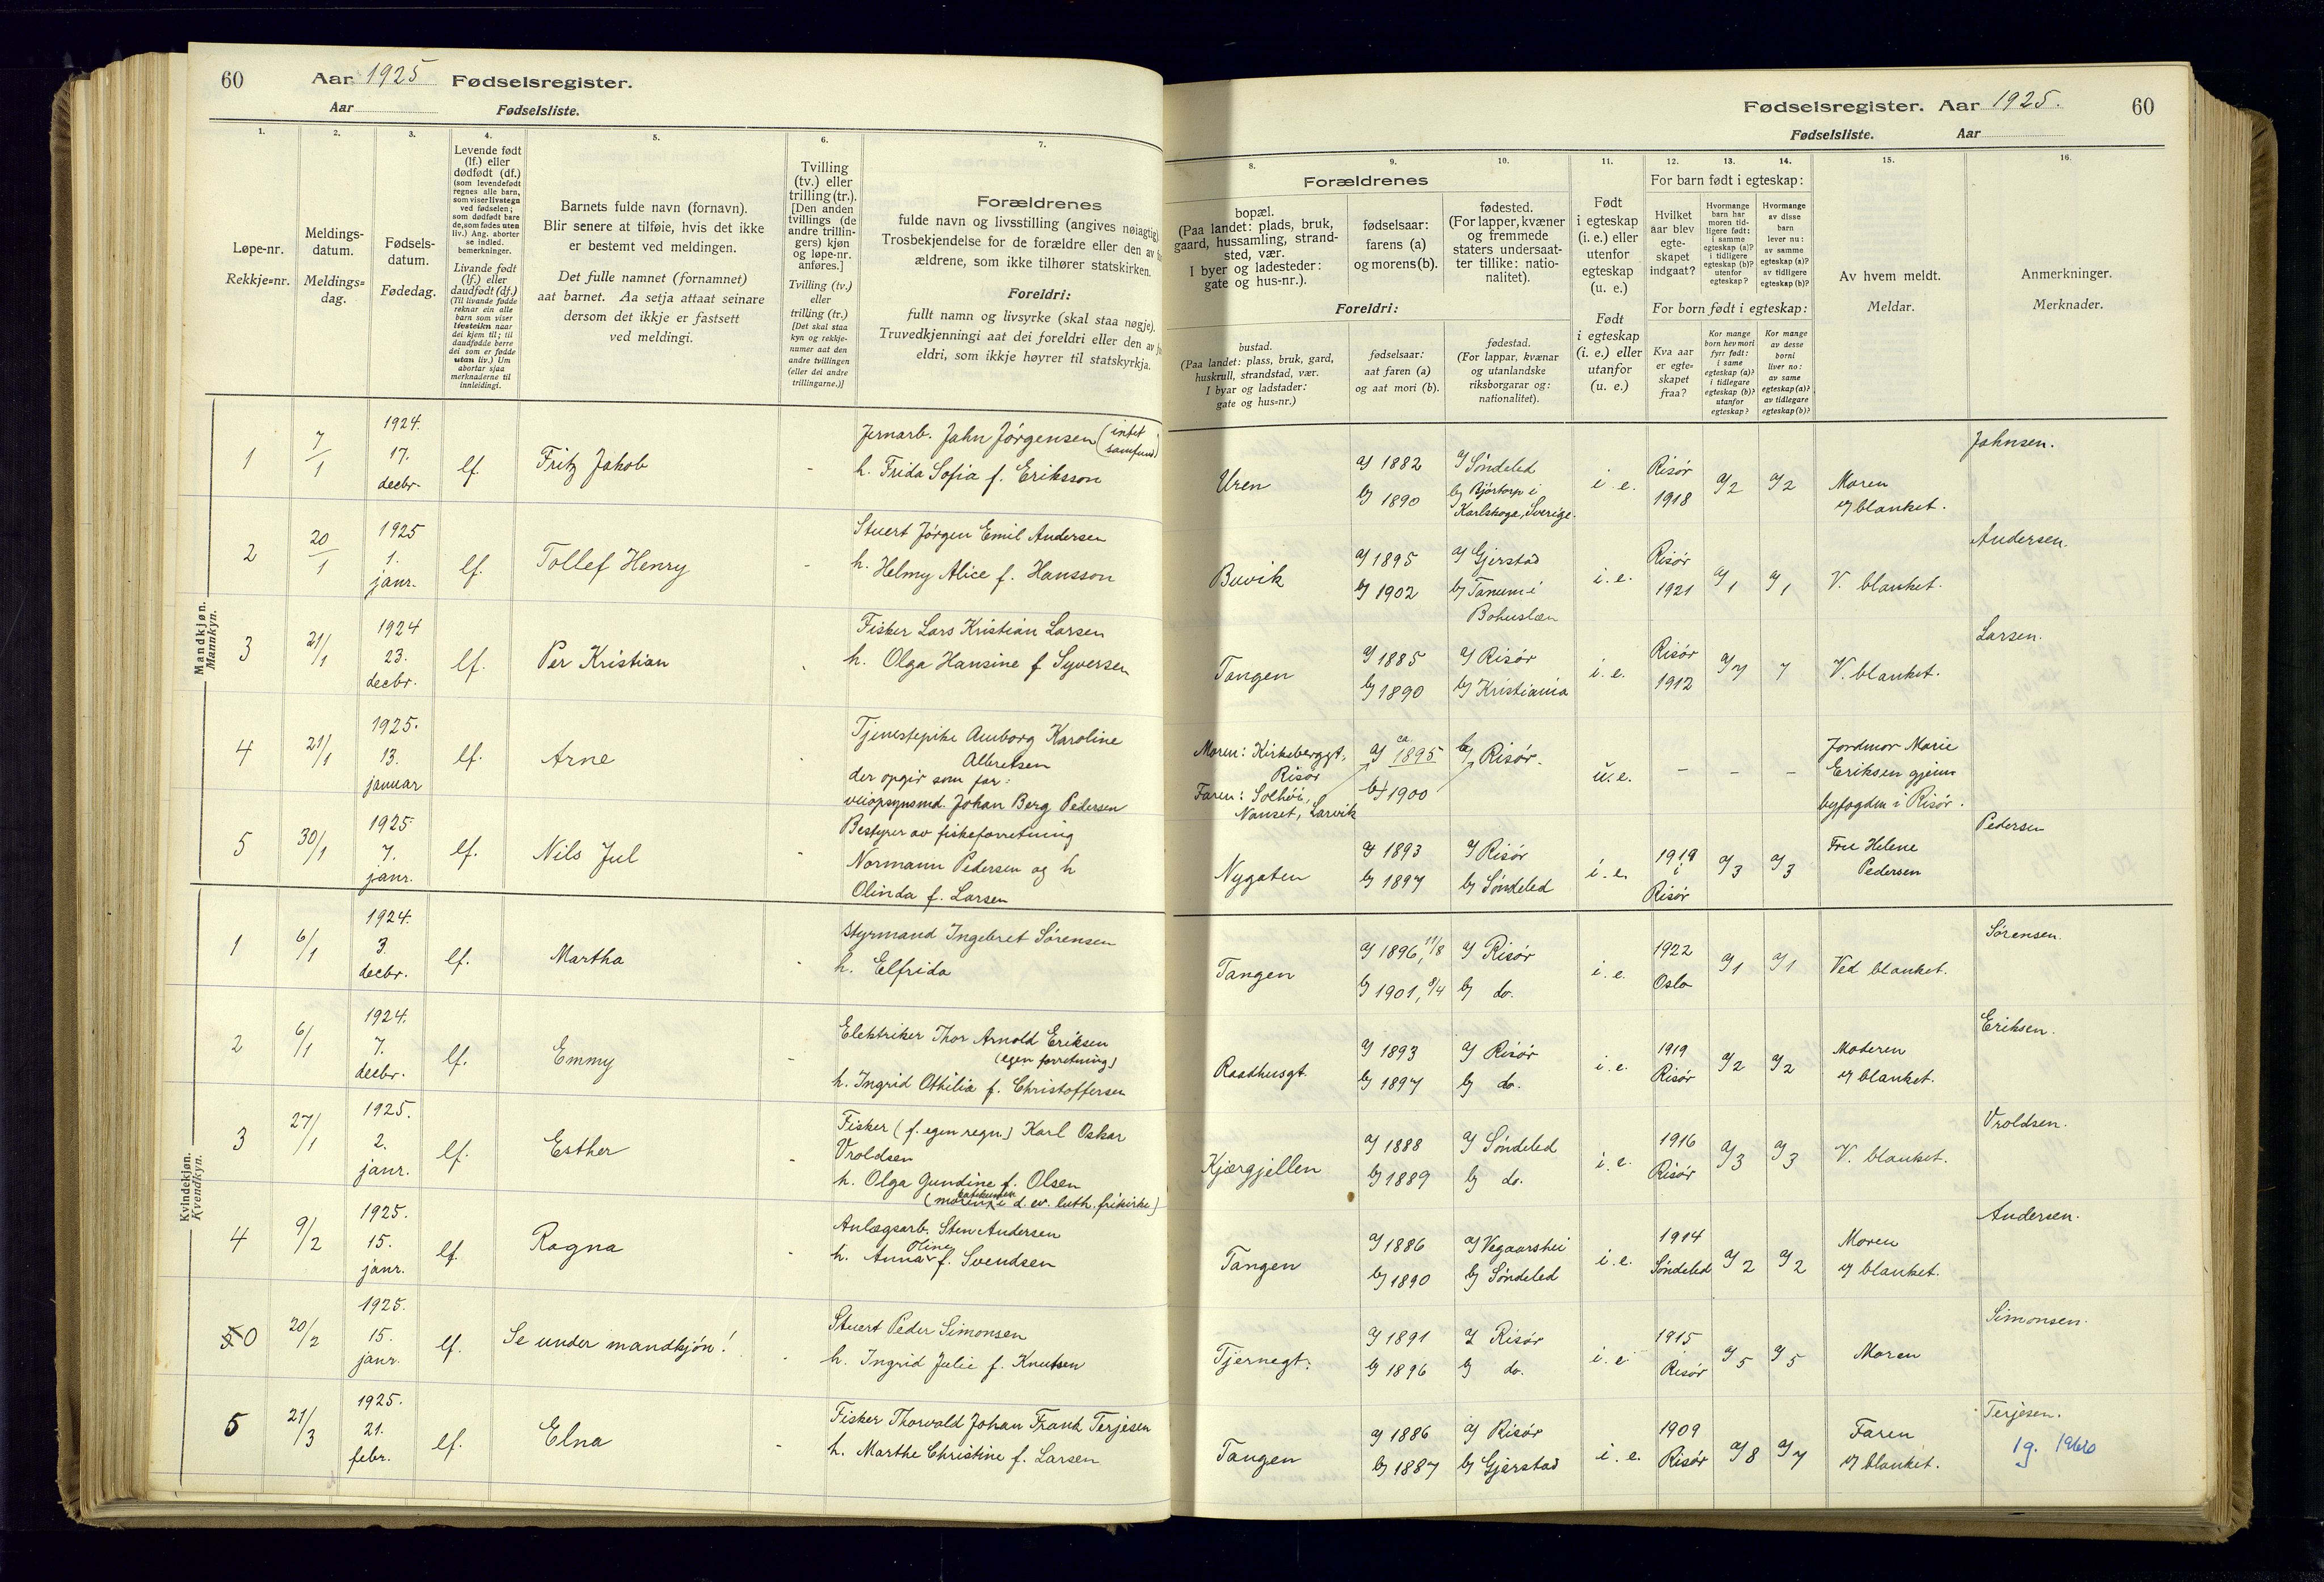 60 Aar 1925 Fødselsregister.
Aar Fødselsliste.
1.
2.
3.
4.
5.
6.
7.
Løpe-nr.
Rekkje=nr.
Meldings-
datum.
Meldings=
dag.
Fødsels-
datum.
Fødedag.
Levende født
(lf.) eller
dødfødt (df.)
(som levendefødt
regnes alle barn,
som viser livstegn
ved fødselen;
som dødfødt bare
de, som fødes uten
liv.) Ang. aborter
se indled.
bemerkninger.
Livande født
(lf.) eller
daudfødt (df.)
(Til livande fødde
reknar ein alle
barn som viser
livsteikn naar
dei kjem til; til
daudfødde berre
dei som er fødde
utan liv.) Um
abortar sjaa
merknaderne til
innleidingi.
Barnets fulde navn (fornavn).
Blir senere at tilføie, hvis det ikke
er bestemt ved meldingen.
Det fulle namnet (fornamnet)
aat barnet. Aa setja attaat seinare
dersom det ikkje er fastsett
ved meldingi.
Tvilling
(tv.) eller
trilling (tr.).
[Den anden
tvillings (de
andre trillin-
gers) kjøn
og løpe-nr.
anføres.]
Tvilling (tv.)
eller
trilling (tr.)
[Det skal staa
kyn og rekkje-
numer aat den
andre tvillingen
(eller dei andre
trillingarne.)]
Forældrenes
fulde navn og livsstilling (angives nøiagtig)
Trosbekjendelse for de forældre eller den av
ældrene, som ikke tilhører statskirken.
Foreldri:
fullt namn og livsyrke (skal staa nøgje).
Truvedkjenningi aat dei foreldri eller den av
eldri, som ikkje høyrer til statskyrkja.
Mandkjøn.
Mannkyn.
1 7/1 1924. 17. decbr. lf. Fritz Jakob - Jernarb. Jahn Jørgensen (intet samfund)
h. Frida Sofia f. Eriksson
2 20/1 1925 1. janr. lf. Tollef Henry - Stuert Jørgen Emil Andersen
h. Helmy Alice f. Hansson
3 21/1 1924 23. decbr. lf. Per Kristian - Fisker Lars Kristian Larsen
h. Olga Hansine f Syversen
4 21/1 1925. 13. januar lf. Arne - Tjenestepike Amborg Karoline
Albretsen
der opgir som far:
veiopsynsmd. Johan Berg Pedersen
5 30/1 1925 7. janr. lf. Nils Jul - Bestyrer av fiskeforretning
Normann Pedersen og h
Olinda f. Larsen
Kvindekjøn.
Kvendkyn.
1 6/1 1924. 3. decbr. lf. Martha - Styrmand Ingebret Sørensen
h. Elfrida
2 6/1 1924. 7. decbr. lf. Emmy - Elektriker Thor Arnold Eriksen
(egen forretning)
h. Ingrid Othilia f. Christoffersen
3 27/1 1925. 2. janr. lf. Esther - Fisker (f. egen regn.) Karl Oskar
Vroldsen
h. Olga Gundine f. Olsen
i d. ev. luth. frikirke)
4 9/2 1925. 15. janr. lf. Ragna - Anlægsarb. Sten Andersen
h. Anna Oline f. Svendsen
5 0 20/2 1925. 15. janr. lf. Se under mandkjøn! - Stuert Peder Simonsen
h. Ingrid Julie f. Knutsen
5 21/3 1925. 21. febr. lf. Elna - Fisker Thorvald Johan Frank Terjesen
h. Marthe Christine f. Larsen
Fødselsregister. Aar 1925. 60
Fødselsliste. Aar
8.
9.
10.
11.
12.
13.
14.
15.
16.
Forældrenes
bopæl.
(Paa landet: plads, bruk,
gaard, hussamling, strand-
sted, vær.
I byer og ladesteder:
gate og hus-nr.).
fødselsaar:
farens (a)
og morens (b).
fødested.
(For lapper, kvæner
og fremmede
staters undersaat-
ter tillike: natio-
nalitet).
Foreldri:
bustad.
(Paa landet: plass, bruk, gard,
huskrull, strandstad, vær.
I byar og ladstader:
gate og hus=nr.)
fødselsaar:
aat faren (a)
og aat mori (b).
fødestad.
(For lappar, kvænar
og utanlandske
riksborgarar og:
nationalitet).
Født
i egteskap
(i. e.) eller
utenfor
egteskap
(u. e.)
Født
i egteskap
(i. e.) eller
utanfor
(u. e.)
For barn født i egteskap:
Hvilket
aar blev
egte-
skapet
indgaat?
Hvormange
barn har
moren tid-
ligere født:
i samme
egteskap (a)?
i tidligere
egteskap (b)?
utenfor
egteskap?
Hvormange
av disse
barn
lever nu:
av samme
egteskap (a)?
av tidligere
egteskap (b)?
For born født i egteskap:
Kva aar
er egte=
skapet
fraa?
Kor mange
born hev mori
fyrr født:
i same
egteskap (a)?
i tidlegare
egteskap (b)?
utanfor
egteskap?
Kor mange
av desse
borni
liver no:
av same
egteskap (a)?
av tidlegare
egteskap (b)?
Av hvem meldt.
Meldar.
Anmerkninger.
Merknader.
Uren a) 1882 b) 1890 a) Søndeled b) Bjørtorp i Karlskoga, Sverige. i. e. Risør 1918 a) 2 a) 2 Moren
ø blanket. Jahnsen.
Buvik a) 1895 b) 1902 a) Gjerstad b) Tanum i Bohuslæn i. e. Risør 1921 a) 1 a) 1 V. blanket. Andersen.
Tangen a) 1885 b) 1890 a) Risør b) Kristiania i. e. Risør 1912 a) 7 7 V. blanket. Larsen.
Moren: Kirkeberggt. Risør
Faren: Solhøi, Nanset, Larvik a) ca. 1895 b) 1900 b) Risør. u. e. - - - Jordmor Marie
Eriksen gjenn
byfogden i Risør.
Nygaten a) 1893 b) 1897 a) Risør b) Søndeled i. e. 1919 i Risør a) 3 a) 3 Fru Helene
Pedersen Pedersen
Tangen a) 1896, 11/8 b) 1901, 8/4 a) Risør b) do. i. e. 1922 Oslo a) 1 a) 1 Ved blanket. Sørensen.
Raadhusgt. a) 1893 b) 1897 a) Risør b) do. i. e. 1919 Risør a) 2 a) 2 Moderen
ø blanket. Eriksen.
Kjærgjellen a) 1888 b) 1889 a) Søndeled b) do. i. e. 1916 Risør a) 3 a) 3 V. blanket. Vroldsen.
Tangen a) 1886 b) 1890 a) Vegaarshei b) Søndeled i. e. 1914 Søndeled a) 2 a) 2 Moren
ø blanket. Andersen.
Tjernegt. a) 1891 b) 1896 a) Risør b) do. i. e. 1915 Risør a) 5 a) 5 Moren Simonsen.
Tangen a) 1886 b) 1887 a) Risør b) Gjerstad i. e. 1909 Risør a) 8 a) 7 Faren
ø blanket. Terjesen.
19. 1960